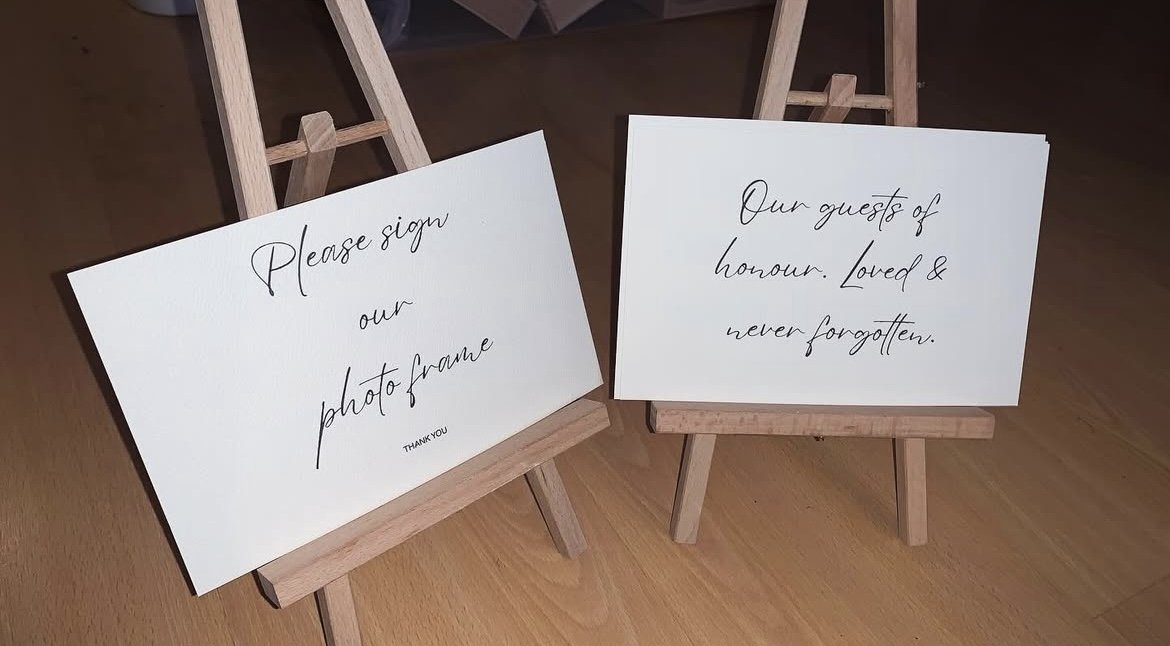 Please sign
our
photo frame
THANK YOU
Our guests of
honour. Loved &
never forgotten.